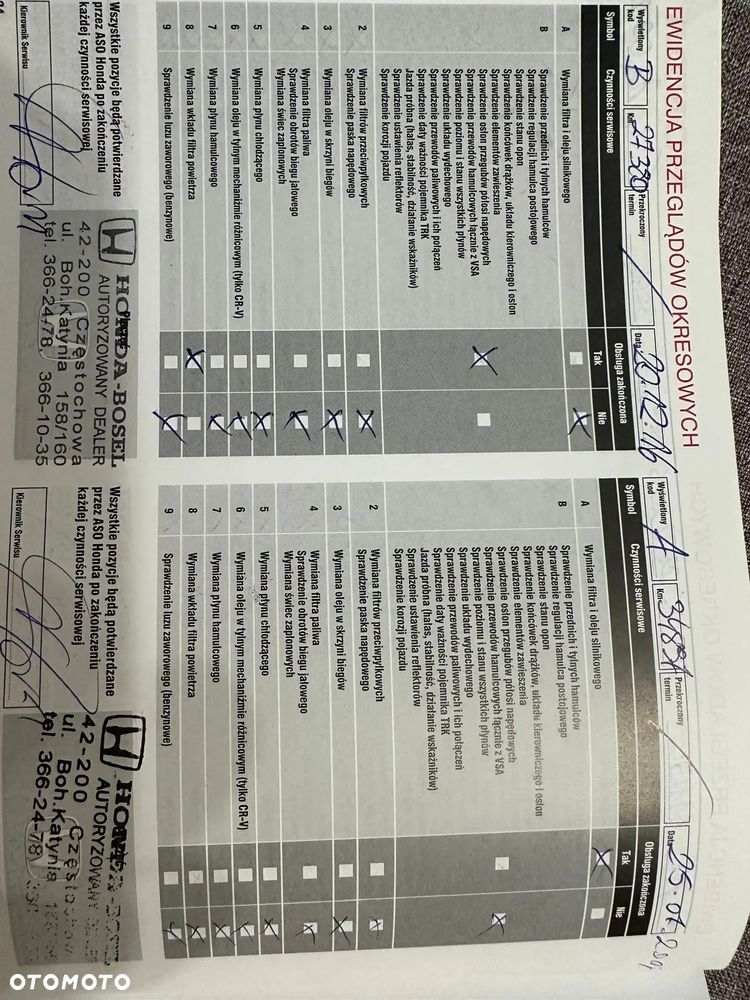 EWIDENCJA PRZEGLĄDÓW OKRESOWYCH
Wyświetlony kod
B
Km
27320
Przekroczony termin
Data
20.12.16
Symbol
Czynności serwisowe
Obsługa zakończona
Tak
Nie
A
Wymiana filtra i oleju silnikowego
B
Sprawdzenie przednich i tylnych hamulców
Sprawdzenie regulacji hamulca postojowego
Sprawdzenie stanu opon
Sprawdzenie końcówek drążków, układu kierowniczego i osłon
Sprawdzenie elementów zawieszenia
Sprawdzenie osłon przegubów półosi napędowych
Sprawdzenie przewodów hamulcowych łącznie z VSA
Sprawdzenie poziomu i stanu wszystkich płynów
Sprawdzenie układu wydechowego
Sprawdzenie przewodów paliwowych i ich połączeń
Sprawdzenie daty ważności pojemnika TRK
Jazda próbna (hałas, stabilność, działanie wskaźników)
Sprawdzenie ustawienia reflektorów
Sprawdzenie korozji pojazdu
2
Wymiana filtrów przeciwpyłkowych
Sprawdzenie paska napędowego
3
Wymiana oleju w skrzyni biegów
4
Wymiana filtra paliwa
Sprawdzenie obrotów biegu jałowego
Wymiana świec zapłonowych
5
Wymiana płynu chłodzącego
6
Wymiana oleju w tylnym mechanizmie różnicowym (tylko CR-V)
7
Wymiana płynu hamulcowego
8
Wymiana wkładu filtra powietrza
9
Sprawdzenie luzu zaworowego (benzynowe)
Wszystkie pozycje będą potwierdzane
przez ASO Honda po zakończeniu
każdej czynności serwisowej
Kierownik Serwisu
HONDA-BOSEL
AUTORYZOWANY DEALER
42-200 Częstochowa
ul. Boh.Katynia 158/160
tel. 366-24-78, 366-10-35
Wyświetlony kod
A
Km
Przekroczony termin
Data
Symbol
Czynności serwisowe
Obsługa zakończona
Tak
Nie
A
Wymiana filtra i oleju silnikowego
B
Sprawdzenie przednich i tylnych hamulców
Sprawdzenie regulacji hamulca postojowego
Sprawdzenie stanu opon
Sprawdzenie końcówek drążków, układu kierowniczego i osłon
Sprawdzenie elementów zawieszenia
Sprawdzenie osłon przegubów półosi napędowych
Sprawdzenie przewodów hamulcowych łącznie z VSA
Sprawdzenie poziomu i stanu wszystkich płynów
Sprawdzenie układu wydechowego
Sprawdzenie przewodów paliwowych i ich połączeń
Sprawdzenie daty ważności pojemnika TRK
Jazda próbna (hałas, stabilność, działanie wskaźników)
Sprawdzenie ustawienia reflektorów
Sprawdzenie korozji pojazdu
2
Wymiana filtrów przeciwpyłkowych
Sprawdzenie paska napędowego
3
Wymiana oleju w skrzyni biegów
4
Wymiana filtra paliwa
Sprawdzenie obrotów biegu jałowego
Wymiana świec zapłonowych
5
Wymiana płynu chłodzącego
6
Wymiana oleju w tylnym mechanizmie różnicowym (tylko CR-V)
7
Wymiana płynu hamulcowego
8
Wymiana wkładu filtra powietrza
9
Sprawdzenie luzu zaworowego (benzynowe)
Wszystkie pozycje będą potwierdzane
przez ASO Honda po zakończeniu
każdej czynności serwisowej
Kierownik Serwisu
HONDA-BOSEL
AUTORYZOWANY
42-200
ul. Boh.Katynia
tel. 366-24-78
OTOMOTO